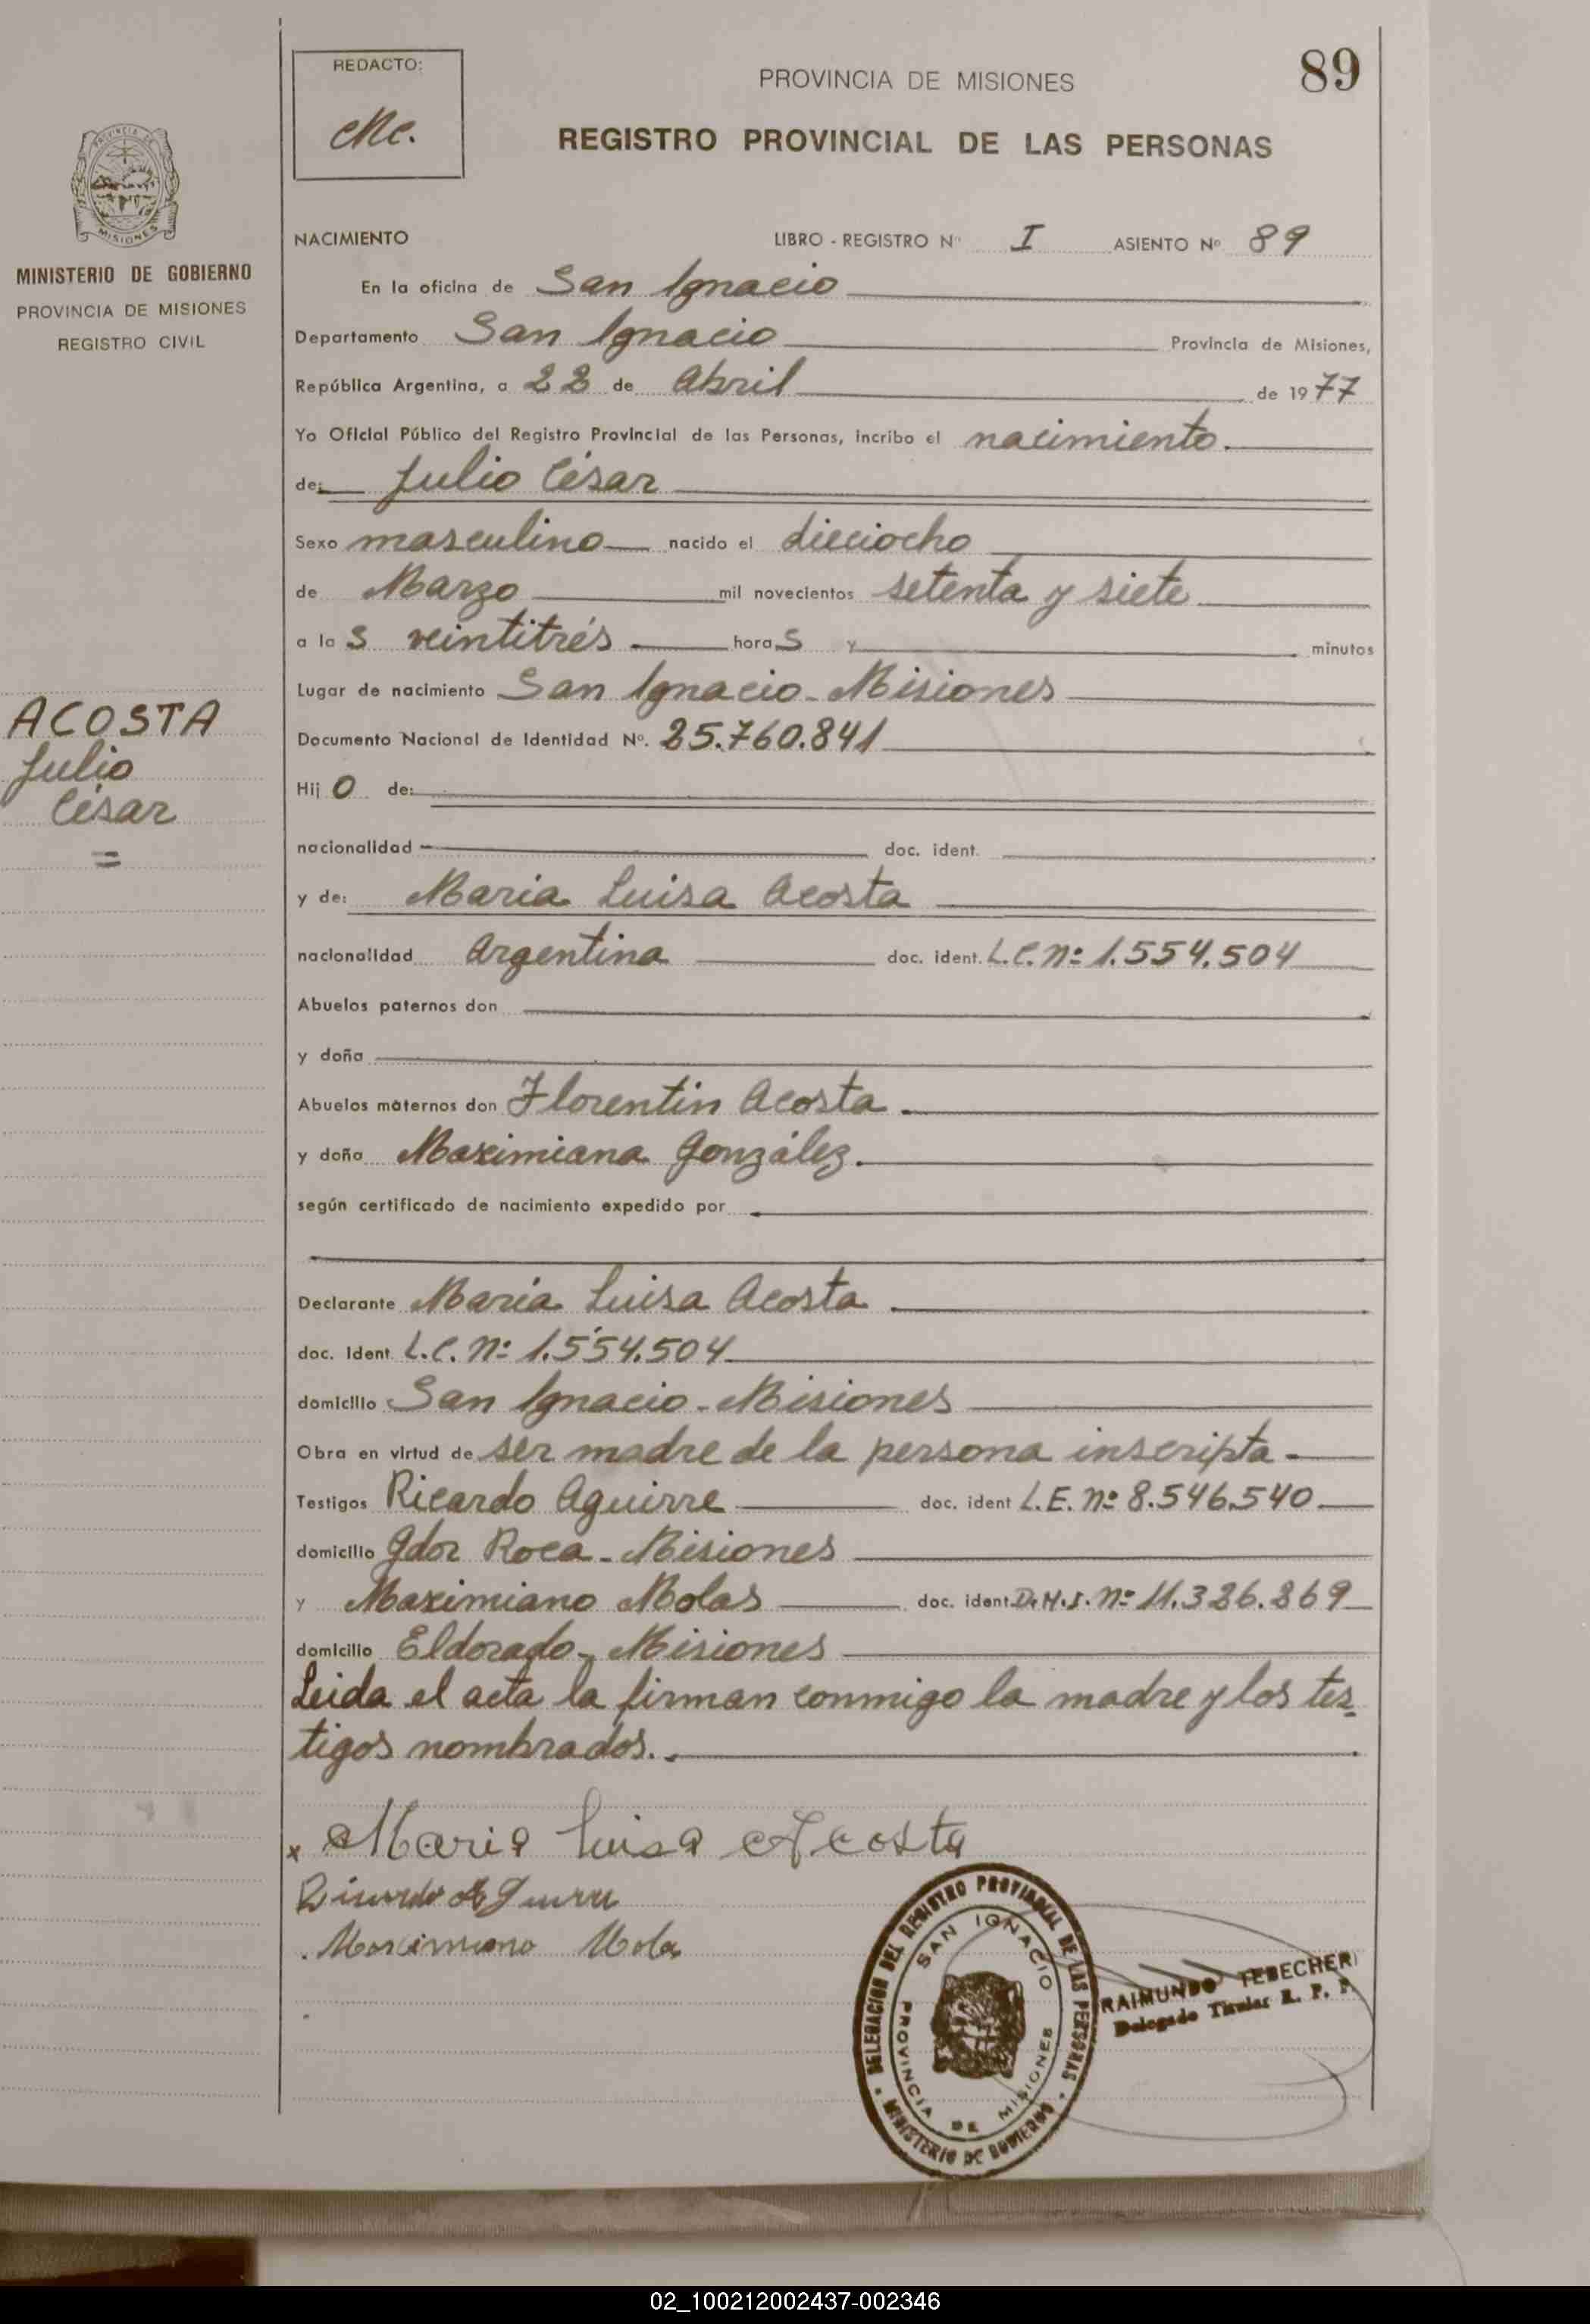 REDACTO:
Mc.
PROVINCIA DE MISIONES
89
REGISTRO PROVINCIAL DE LAS PERSONAS
PROVINCIA DE
MISIONES
MINISTERIO DE GOBIERNO
PROVINCIA DE MISIONES
REGISTRO CIVIL
ACOSTA
Julio
César
=
NACIMIENTO LIBRO - REGISTRO Nº I ASIENTO Nº 89
En la oficina de San Ignacio
Departamento San Ignacio Provincia de Misiones,
República Argentina, a 22 de Abril de 1977
Yo Oficial Público del Registro Provincial de las Personas, incribo el nacimiento.
de: Julio César
Sexo masculino nacido el dieciocho
de Marzo mil novecientos setenta y siete
a las veintitrés horas y minutos
Lugar de nacimiento San Ignacio - Misiones
Documento Nacional de Identidad Nº. 25.760.841
Hijo de:
nacionalidad doc. ident.
y de: Maria Luisa Acosta
nacionalidad Argentina doc. ident. L.C. nº 1.554.504
Abuelos paternos don
y doña
Abuelos maternos don Florentin Acosta.
y doña Maximiana González.
según certificado de nacimiento expedido por
Declarante Maria Luisa Acosta
doc. Ident L.C. nº 1.554.504
domicilio San Ignacio - Misiones
Obra en virtud de ser madre de la persona inscripta -
Testigos Ricardo Aguirre doc. ident L.E. nº 8.546.540
domicilio Gdor Roca - Misiones
y Maximiano Molas doc. ident. nº 11.326.269
domicilio Eldorado - Misiones
Leida el acta la firman conmigo la madre y los tes-
tigos nombrados.
x Maria Luisa Acosta
Ricardo Aguirre
Maximiano Molas
DELEGACION DEL REGISTRO PROVINCIAL DE LAS PERSONAS
SAN IGNACIO
PROVINCIA DE MISIONES
MINISTERIO DE GOBIERNO
RAIMUNDO TEBECHERI
Delegado Titular R. P. P.
02_100212002437-002346